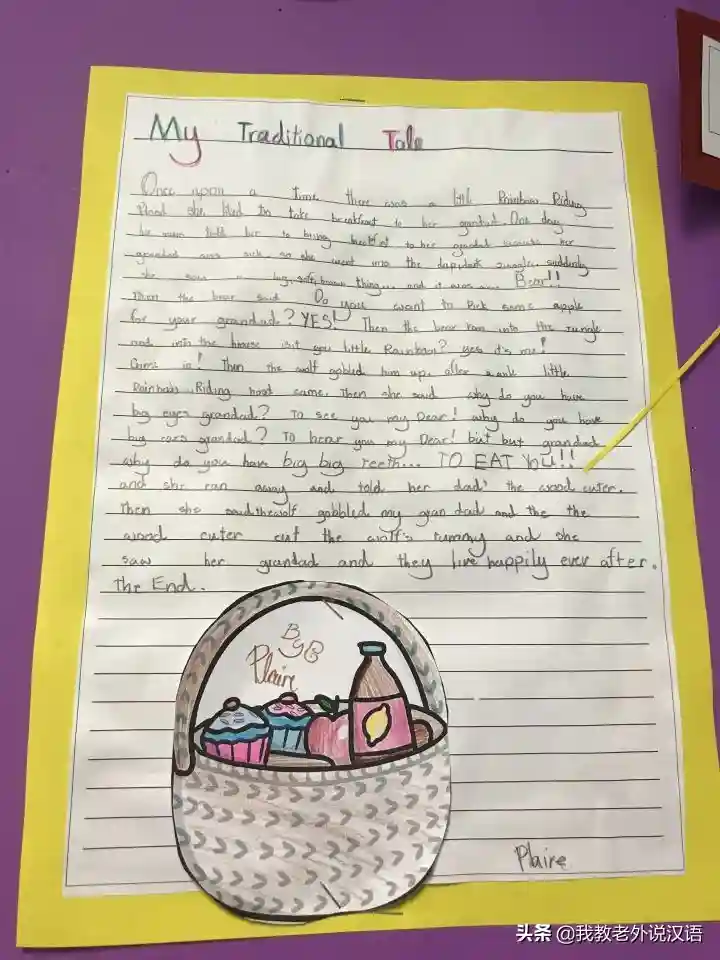 My Traditional Tale
Once upon a time there was a little Rainbow Riding
Hood she liked to take breakfast to her grandad. One day
her mum told her to bring breakfast to her grandad because her
grandad was sick, so she went into the deep, dark jungle, suddenly
she saw a big, soft, brown thing... and it was a Bear!!
Then the bear said Do you want to Pick some apple
for your grandad? YES! Then the bear ran into the Jungle
and into the house isit you little Rainbow? yes it's me!
Come in! Then the wolf gobled him up, after a while little
Rainbow Riding hoot came. Then she said why do you have
big eyes grandad? To see you my Dear! why do you have
big ears grandad? To hear you my Dear! but but grandad
why do you have big big teeth... TO EAT YOU!!
and she ran away and told her dad' the wood cuter.
Then she said thewolf gobbled my gran dad and the the
wood cuter cut the wolf's tummy and she
saw her grandad and they live happily ever after.
the End.
By
Plaire
Plaire
头条 @我教老外说汉语